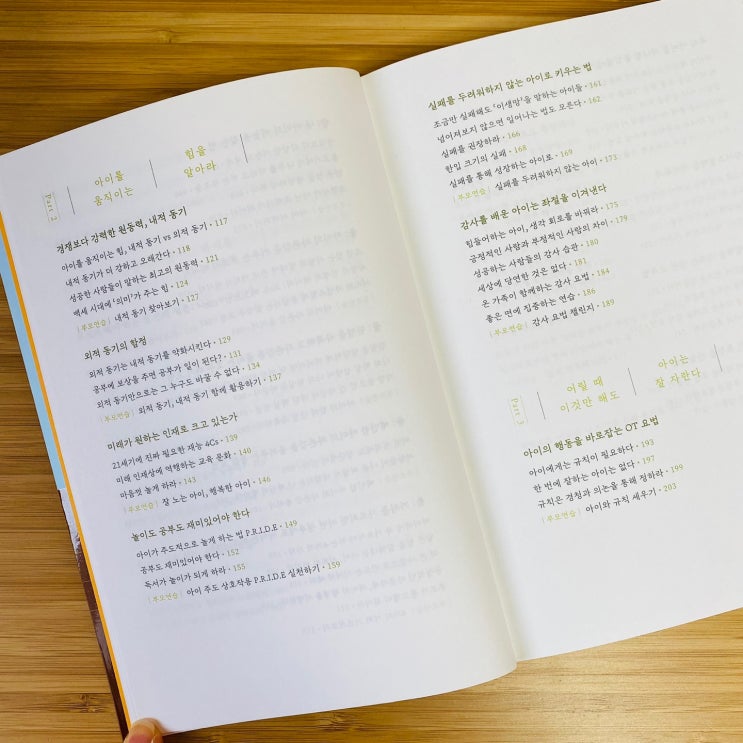 Part 2
아이를
움직이는
힘을
알아라
경쟁보다 강력한 원동력, 내적 동기
아이를 움직이는 힘, 내적 동기 vs 외적 동기 · 117
내적 동기가 더 강하고 오래간다 · 118
성공한 사람들이 말하는 최고의 원동력 · 121
백세 시대에 '의미'가 주는 힘 · 124
| 부모연습 | 내적 동기 찾아보기 · 127
외적 동기의 함정
외적 동기는 내적 동기를 약화시킨다 · 129
공부에 보상을 주면 공부가 일이 된다? · 131
외적 동기만으로는 그 누구도 바꿀 수 없다 · 134
| 부모연습 | 외적 동기, 내적 동기 함께 활용하기 · 137
미래가 원하는 인재로 크고 있는가
21세기에 진짜 필요한 재능 4Cs · 139
미래 인재상에 역행하는 교육 문화 · 140
마음껏 놀게 하라 · 143
| 부모연습 | 잘 노는 아이, 행복한 아이 · 146
놀이도 공부도 재미있어야 한다
아이가 주도적으로 놀게 하는 법 P.R.I.D.E · 149
공부도 재미있어야 한다 · 152
독서가 놀이가 되게 하라 · 155
| 부모연습 | 아이 주도 상호작용 P.R.I.D.E 실천하기 · 159
실패를 두려워하지 않는 아이로 키우는 법
조금만 실패해도 '이생망'을 말하는 아이들 · 161
넘어져보지 않으면 일어나는 법도 모른다 · 162
실패를 권장하라 · 166
한입 크기의 실패 · 168
실패를 통해 성장하는 아이로 · 169
| 부모연습 | 실패를 두려워하지 않는 아이 · 173
감사를 배운 아이는 좌절을 이겨낸다
힘들어하는 아이, 생각 회로를 바꿔라 · 175
긍정적인 사람과 부정적인 사람의 차이 · 179
성공하는 사람들의 감사 습관 · 180
세상에 당연한 것은 없다 · 181
온 가족이 함께하는 감사 요법 · 184
좋은 면에 집중하는 연습 · 186
| 부모연습 | 감사 요법 챌린지 · 189
Part 3
어릴 때
이것만 해도
아이는
잘 자란다
아이의 행동을 바로잡는 OT 요법
아이에게는 규칙이 필요하다 · 193
한 번에 잘하는 아이는 없다 · 197
규칙은 경청과 의논을 통해 정하라 · 199
| 부모연습 | 아이와 규칙 세우기 · 203